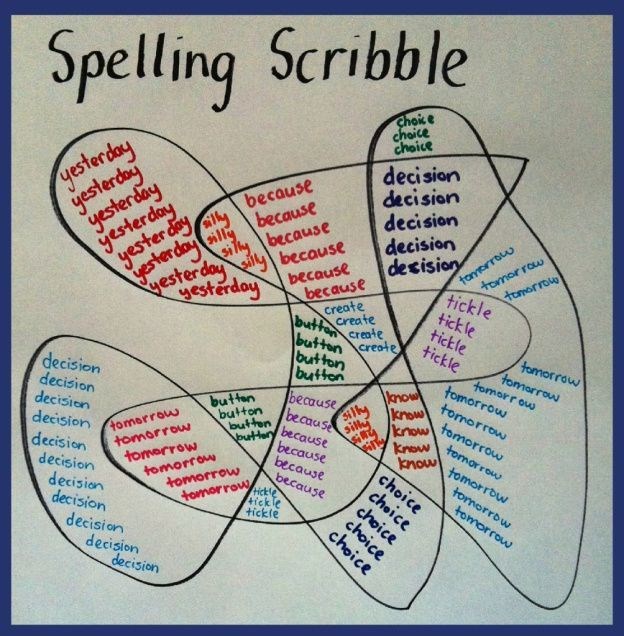 Spelling Scribble
yesterday
yesterday
yesterday
yesterday
yesterday
yesterday
yesterday
yesterday
silly
silly
silly
silly
because
because
because
because
because
because
choice
choice
choice
decision
decision
decision
decision
decision
tomorrow
tomorrow
tomorrow
create
create
create
create
button
button
button
button
tickle
tickle
tickle
tickle
decision
decision
decision
decision
decision
decision
decision
decision
decision
decision
decision
tomorrow
tomorrow
tomorrow
tomorrow
tomorrow
tomorrow
button
button
button
button
because
because
because
because
because
because
silly
silly
silly
silly
know
know
know
know
know
tomorrow
tomorrow
tomorrow
tomorrow
tomorrow
tomorrow
tomorrow
tomorrow
tomorrow
tomorrow
tickle
tickle
tickle
choice
choice
choice
choice
choice